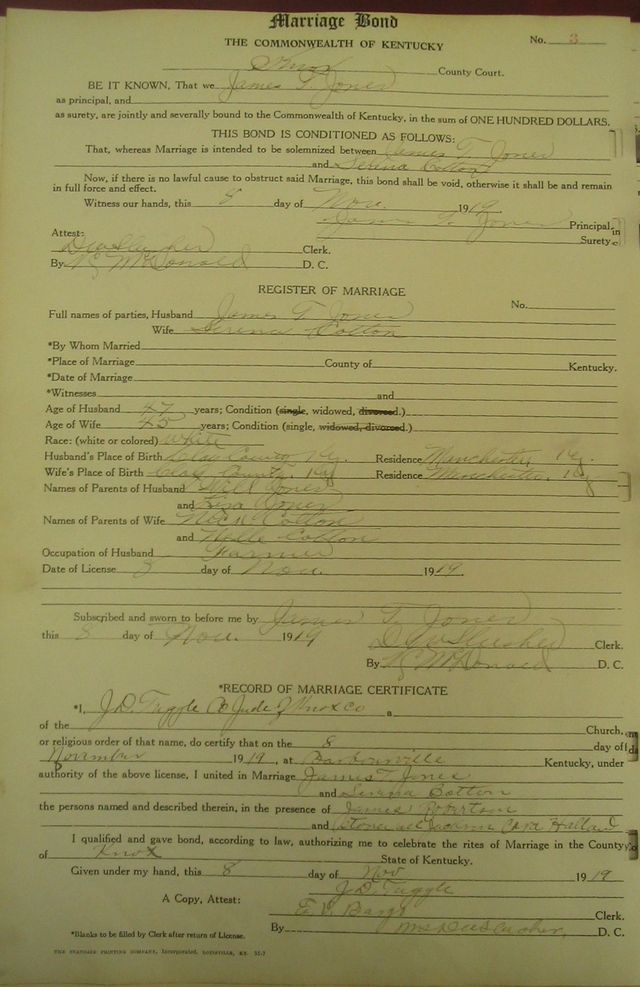 Marriage Bond
No. 3
THE COMMONWEALTH OF KENTUCKY
Knox County Court.
BE IT KNOWN, That we James T. Jones
as principal, and
as surety, are jointly and severally bound to the Commonwealth of Kentucky, in the sum of ONE HUNDRED DOLLARS.
THIS BOND IS CONDITIONED AS FOLLOWS:
That, whereas Marriage is intended to be solemnized between James T. Jones
and Serena Cotton
Now, if there is no lawful cause to obstruct said Marriage, this bond shall be void, otherwise it shall be and remain
in full force and effect.
Witness our hands, this 8 day of Nov. 1919.
James T. Jones Principal,
Surety
Attest:
D W Slusher Clerk.
By McDonald D. C.
REGISTER OF MARRIAGE
No.
Full names of parties, Husband James T. Jones
Wife Serena Cotton
*By Whom Married
*Place of Marriage County of Kentucky.
*Date of Marriage
*Witnesses and
Age of Husband 47 years; Condition (single, widowed, divorced.)
Age of Wife 45 years; Condition (single, widowed, divorced.)
Race: (white or colored) White
Husband's Place of Birth Clay County, Ky. Residence Manchester, Ky.
Wife's Place of Birth Clay County, Ky. Residence Manchester, Ky
Names of Parents of Husband Will Jones
and Jones
Names of Parents of Wife Cotton
and Cotton
Occupation of Husband Farmer
Date of License 8 day of Nov. 1919.
Subscribed and sworn to before me by James T. Jones
this 8 day of Nov. 1919 D W Slusher Clerk.
By McDonald D. C.
*RECORD OF MARRIAGE CERTIFICATE
*I, J.D. Tuggle Co Jude of Knox Co a
of the Church,
or religious order of that name, do certify that on the 8 day of
November 1919, at Barbourville Kentucky, under
authority of the above license, I united in Marriage James T. Jones
and Serena Botton
the persons named and described therein, in the presence of James Robertson
and
I qualified and gave bond, according to law, authorizing me to celebrate the rites of Marriage in the County
of Knox State of Kentucky.
Given under my hand, this 8 day of Nov 1919
J D Tuggle
A Copy, Attest:
Clerk.
By D. C.
*Blanks to be filled by Clerk after return of License.
THE STANDARD PRINTING COMPANY, Incorporated, LOUISVILLE, KY.